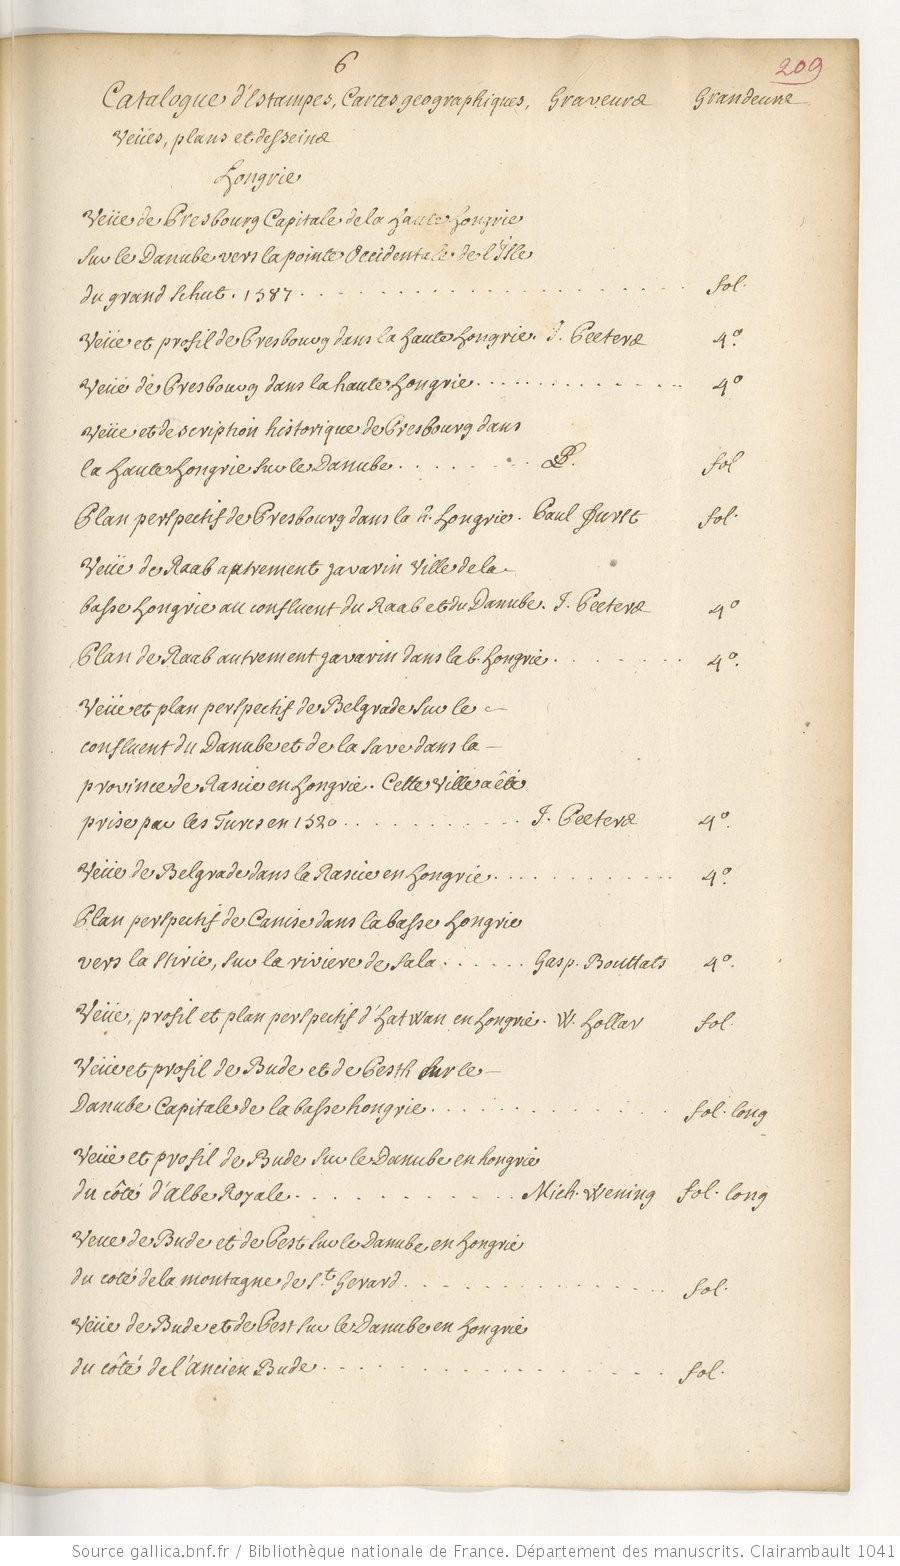 6
209
Catalogue d'Estampes, Cartes geographiques, Graveurs Grandeurs
Veües, plans et desseins
Hongrie
Veüe de Presbourg Capitale de la Haute Hongrie
sur le Danube vers la pointe Occidentale de l'Isle
du grand Schut. 1587 . . . . . . . . . . . . . . . . . . . . fol.
Veüe et profil de Presbourg dans la haute Hongrie. J. Peeters 4.º
Veüe de Presbourg dans la haute Hongrie . . . . . . . . . . . . . . 4º
Veüe et description historique de Presbourg dans
la Haute Hongrie sur le Danube . . . . . . . . fol
Plan perspectif de Presbourg dans la h. Hongrie. Paul Furst fol.
Veüe de Raab autrement javarin Ville de la
basse Hongrie au confluent du Raab et du Danube. J. Peeters 4º
Plan de Raab autrement javarin dans la b. Hongrie . . . . . . . 4º.
Veüe et plan perspectif de Belgrade sur le
confluent du Danube et de la Save dans la
province de Rascie en Hongrie. Cette Ville a êté
prise par les Turcs en 1520 . . . . . . . . . . . J. Peeters 4º.
Veüe de Belgrade dans la Rascie en Hongrie . . . . . . . . . . . . 4º.
Plan perspectif de Canise dans la basse Hongrie
vers la Stirie, sur la riviere de Sala . . . . . . Gasp. Bouttats 4º.
Veüe, profil et plan perspectif d'Hatwan en Hongrie. W. Hollar fol.
Veüe et profil de Bude et de Pesth sur le
Danube Capitale de la basse hongrie . . . . . . . . . . . . fol. long
Veüe et profil de Bude sur le Danube en hongrie
du côté d'Albe Royale . . . . . . . . . . . . Mich. Wening fol. long
Veue de Bude et de Pest sur le Danube en Hongrie
du coté de la montagne de St. Gerard . . . . . . . . . . . . fol.
Veüe de Bude et de Pest sur le Danube en Hongrie
du côté de l'ancien Bude . . . . . . . . . . . . . . . . fol.
Source gallica.bnf.fr / Bibliothèque nationale de France. Département des manuscrits. Clairambault 1041